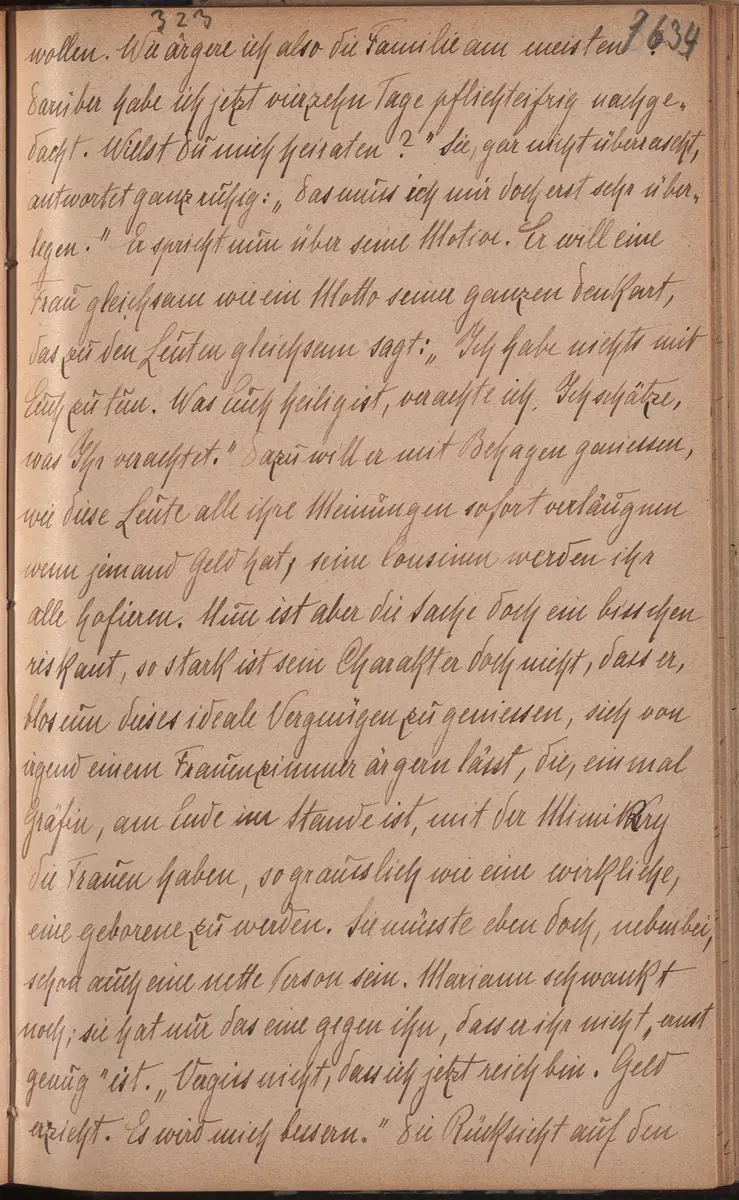 323
7634
wollen. Wie ärgere ich also die Familie am meisten?
Darüber habe ich jetzt vierzehn Tage pflichteifrig nachge-
dacht. Willst Du mich heiraten?" Sie, gar nicht überrascht,
antwortet ganz ruhig: „Das muss ich mir doch erst sehr über-
legen." Er spricht nun über seine Motive. Er will eine
Frau gleichsam wie ein Motto seiner ganzen Denkart,
das zu den Leuten gleichsam sagt: „Ich habe nichts mit
Euch zu tun. Was Euch heilig ist, verachte ich. Ich schätze,
was Ihr verachtet." Dazu will er mit Behagen geniessen,
wie diese Leute alle ihre Meinungen sofort verläugnen
wenn jemand Geld hat; seine Cousinen werden ihr
alle hofieren. Nun ist aber die Sache doch ein bisschen
riskant, so stark ist sein Charakter doch nicht, dass er,
blos um dieses ideale Vergnügen zu geniessen, sich von
irgend einem Frauenzimmer ärgern lässt, die, einmal
Gräfin, am Ende im Stande ist, mit der Mimikry
die Frauen haben, so grauslich wie eine wirkliche,
eine geborene zu werden. Sie müsste eben doch, nebenbei,
schon auch eine nette Person sein. Mariann schwankt
noch; sie hat nur das eine gegen ihn, dass er ihr nicht „ernst
genug" ist. „Vergiss nicht, dass ich jetzt reich bin. Geld
erzieht. Es wird mich bessern." Die Rücksicht auf den